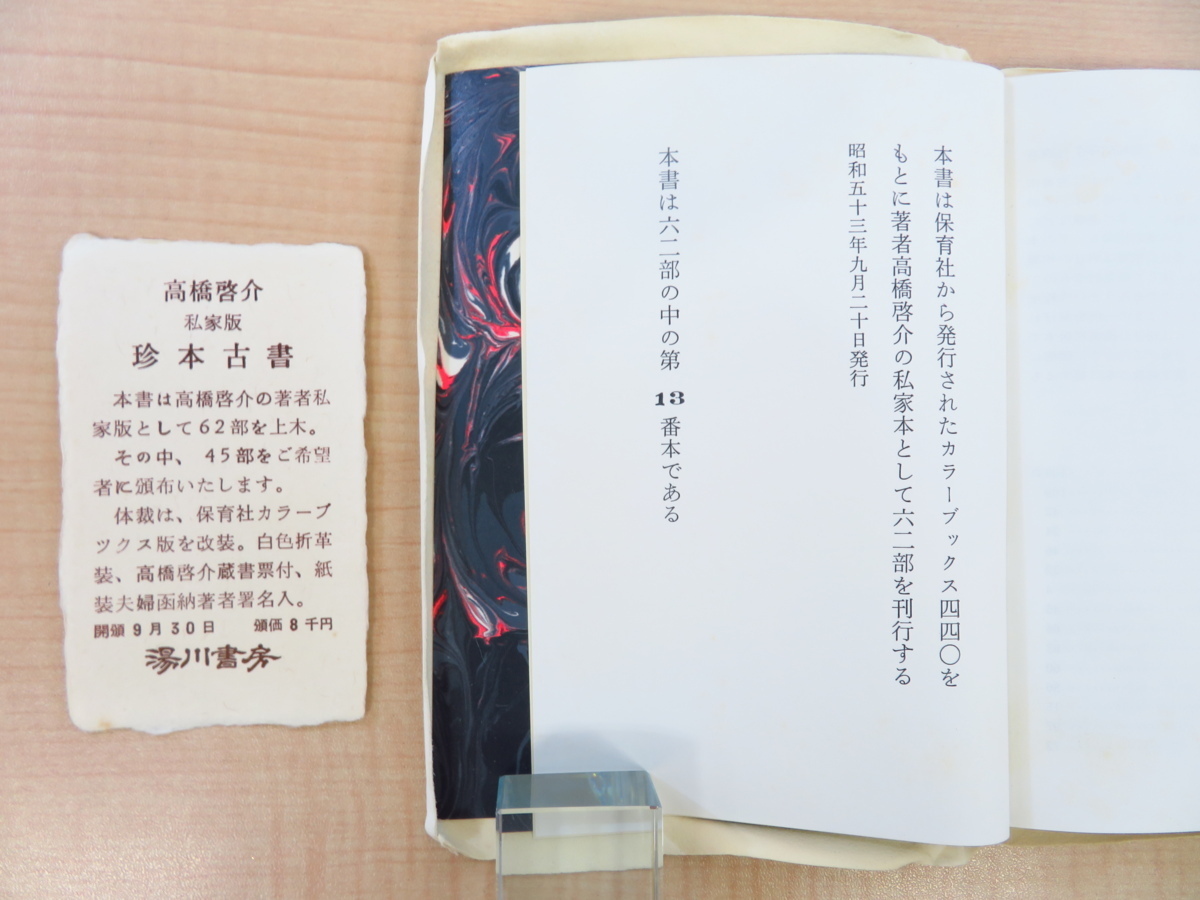 高橋啓介
私家版
珍本古書
本書は高橋啓介の著者私
家版として62部を上木。
その中、45部をご希望
者に頒布いたします。
体裁は、保育社カラーブ
ックス版を改装。白色折革
装、高橋啓介蔵書票付、紙
装夫婦函納著者署名入。
開頒9月30日 頒価8千円
湯川書房
本書は保育社から発行されたカラーブックス四四〇を
もとに著者高橋啓介の私家本として六二部を刊行する
昭和五十三年九月二十日発行
本書は六二部の中の第 13 番本である